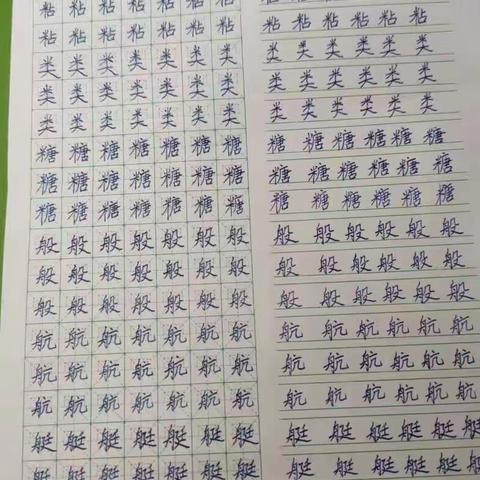 粘粘粘粘粘粘粘
粘粘粘粘粘粘粘
类类类类类类类
类类类类类类类
类类类类类类类
糖糖糖糖糖糖糖
糖糖糖糖糖糖糖
糖糖糖糖糖糖糖
般般般般般般般
般般般般般般般
般般般般般般般
航航航航航航航
航航航航航航航
航航航航航航航
艇艇艇艇艇艇艇
艇艇艇艇艇艇艇
粘粘粘粘粘粘
类类类类类类
类类类类类类
类类类类类类
糖糖糖糖糖
糖糖糖糖糖糖
糖糖糖糖糖糖
般般般般般般
般般般般般般
般般般般般般
航航航航航航
航航航航航航
航航航航航航
艇艇艇艇艇艇
艇艇艇艇艇艇